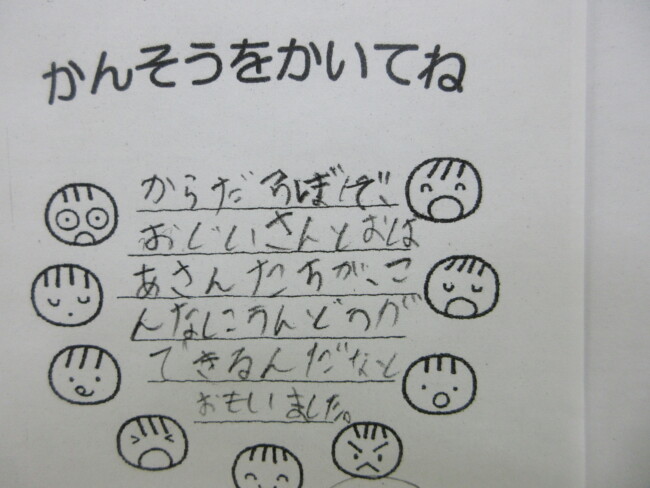 かんそうをかいてね
からだろぼんぞ、
おじいさんとおば
あさんたちが、こ
んなにうんどうが
できるんだなと
おもいました。